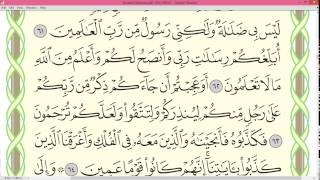 لَيْسَ بِى ضَلَٰلَةٌ وَلَٰكِنِّى رَسُولٌ مِّن رَّبِّ ٱلْعَٰلَمِينَ ٦١
أُبَلِّغُكُمْ رِسَٰلَٰتِ رَبِّى وَأَنصَحُ لَكُمْ وَأَعْلَمُ مِنَ ٱللَّهِ
مَا لَا تَعْلَمُونَ ٦٢ أَوَعَجِبْتُمْ أَن جَآءَكُمْ ذِكْرٌ مِّن رَّبِّكُمْ
عَلَىٰ رَجُلٍ مِّنكُمْ لِيُنذِرَكُمْ وَلِتَتَّقُوا۟ وَلَعَلَّكُمْ تُرْحَمُونَ
٦٣ فَكَذَّبُوهُ فَأَنجَيْنَٰهُ وَٱلَّذِينَ مَعَهُۥ فِى ٱلْفُلْكِ وَأَغْرَقْنَا ٱلَّذِينَ
كَذَّبُوا۟ بِـَٔايَٰتِنَآ إِنَّهُمْ كَانُوا۟ قَوْمًا عَمِينَ ٦٤ ۞ وَإِلَىٰ